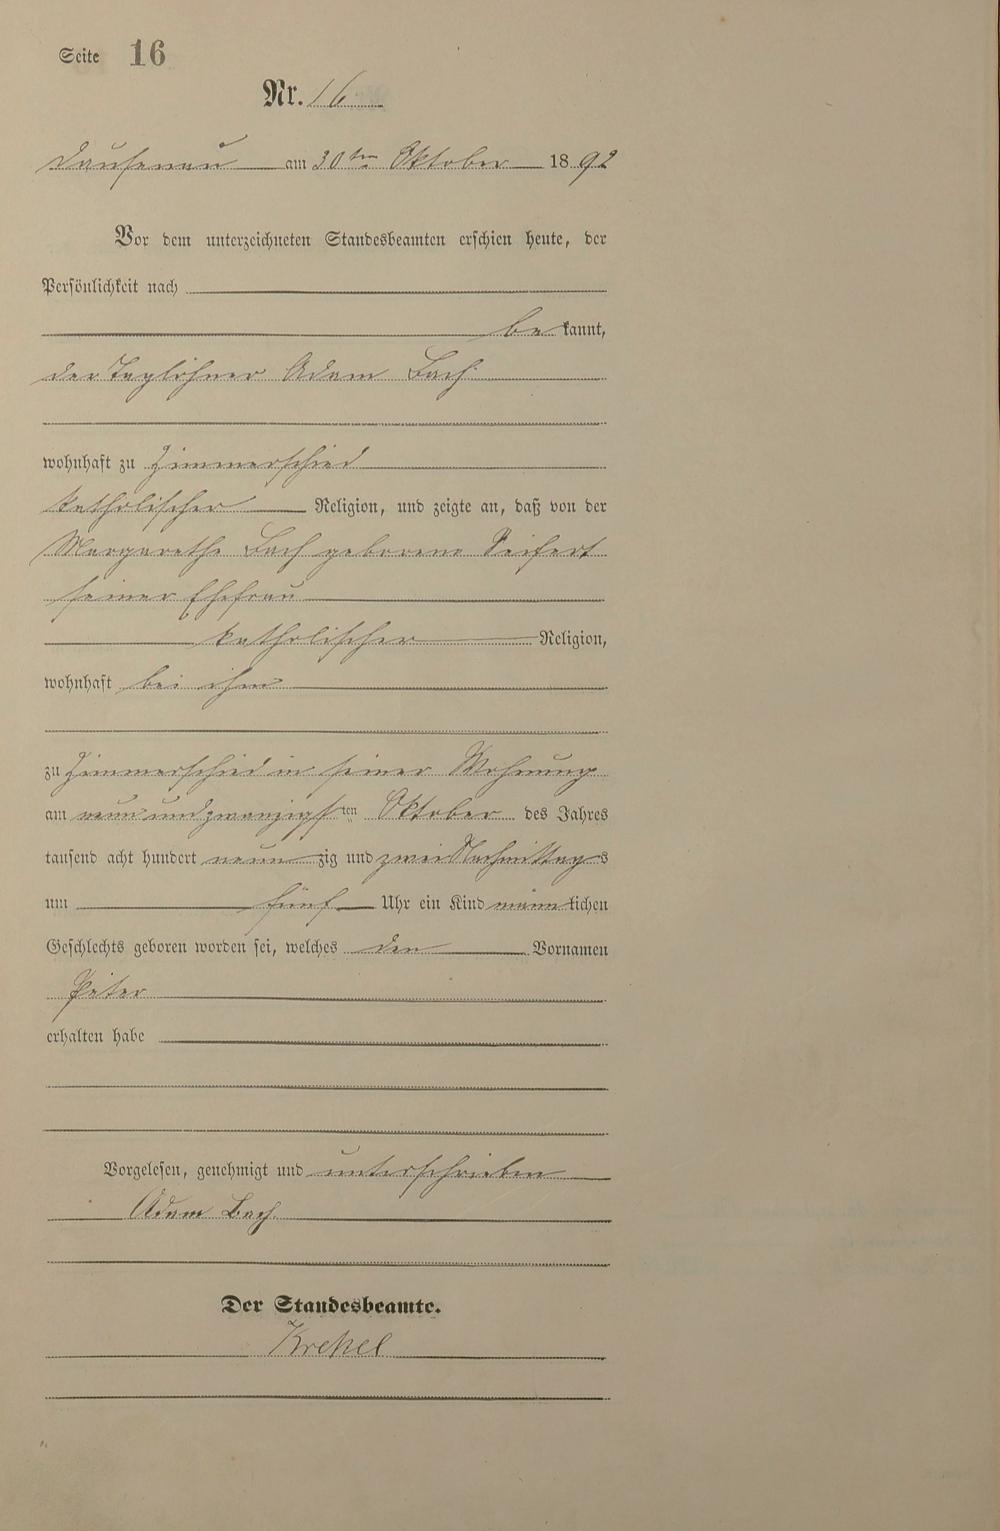 Seite 16
Nr. 16
Dausenau am 30ten Oktober 1892
Vor dem unterzeichneten Standesbeamten erschien heute, der
Persönlichkeit nach
bekannt,
der Taglöhner Adam Bach
wohnhaft zu Zimmerschied
katholischer Religion, und zeigte an, daß von der
Margarethe Bach geborene Seifert
seiner Ehefrau
katholischer Religion,
wohnhaft bei ihm
zu Zimmerschied in seiner Wohnung
am neun und zwanzigsten Oktober des Jahres
tausend acht hundert neunzig und zwei Nachmittags
um fünf Uhr ein Kind männlichen
Geschlechts geboren worden sei, welches den Vornamen
Peter
erhalten habe
Vorgelesen, genehmigt und unterschrieben
Adam Bach
Der Standesbeamte.
Krekel